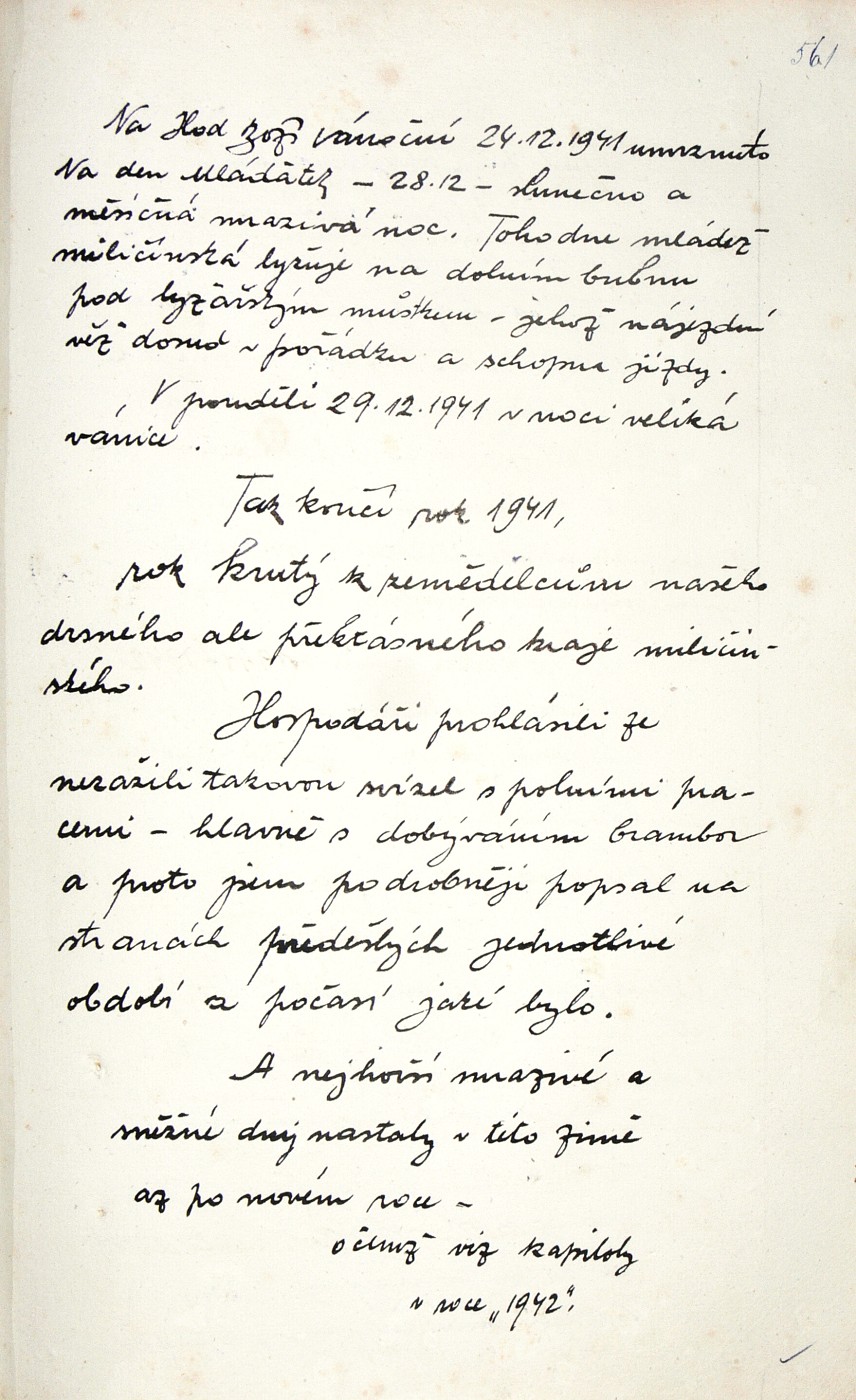 561
Na Hod Boží vánoční 24.12.1941 umrznuto
Na den Mláďátek – 28.12 – slunečno a
měsíčná mrazivá noc. Tohodne mládež
miličínská lyžuje na dolním bubnu
pod lyžařským můstkem – jehož nájezdní
věž dosud v pořádku a schopna jízdy.
V pondělí 29.12.1941 v noci veliká
vánice.
Tak končí rok 1941,
rok krutý k zemědělcům našeho
drsného ale překrásného kraje miličín-
ského.
Hospodáři prohlásili že
nezažili takovou svízel s polními pra-
cemi – hlavně s dobýváním brambor
a proto jsem podrobněji popsal na
stranách předešlých jednotlivé
období a počasí jaké bylo.
A nejhorší mrazivé a
sněžné dny nastaly v této zimě
až po novém roce –
o čemž viz kapitoly
v roce „1942".